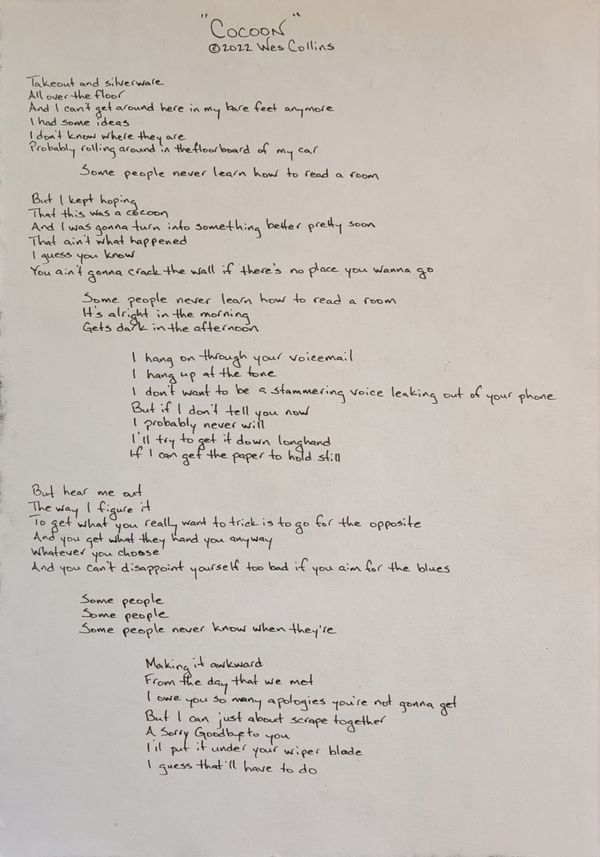 "Cocoon"
©2022 Wes Collins
Takeout and silverware
All over the floor
And I can't get around here in my bare feet anymore
I had some ideas
I don't know where they are
Probably rolling around in the floorboard of my car
Some people never learn how to read a room
But I kept hoping
That this was a cocoon
And I was gonna turn into something better pretty soon
That ain't what happened
I guess you know
You ain't gonna crack the wall if there's no place you wanna go
Some people never learn how to read a room
It's alright in the morning
Gets dark in the afternoon
I hang on through your voicemail
I hang up at the tone
I don't want to be a stammering voice leaking out of your phone
But if I don't tell you now
I probably never will
I'll try to get it down longhand
If I can get the paper to hold still
But hear me out
The way I figure it
To get what you really want to trick is to go for the opposite
And you get what they hand you anyway
Whatever you choose
And you can't disappoint yourself too bad if you aim for the blues
Some people
Some people
Some people never know when they're
Making it awkward
From the day that we met
I owe you so many apologies you're not gonna get
But I can just about scrape together
A Sorry Goodbye to you
I'll put it under your wiper blade
I guess that'll have to do